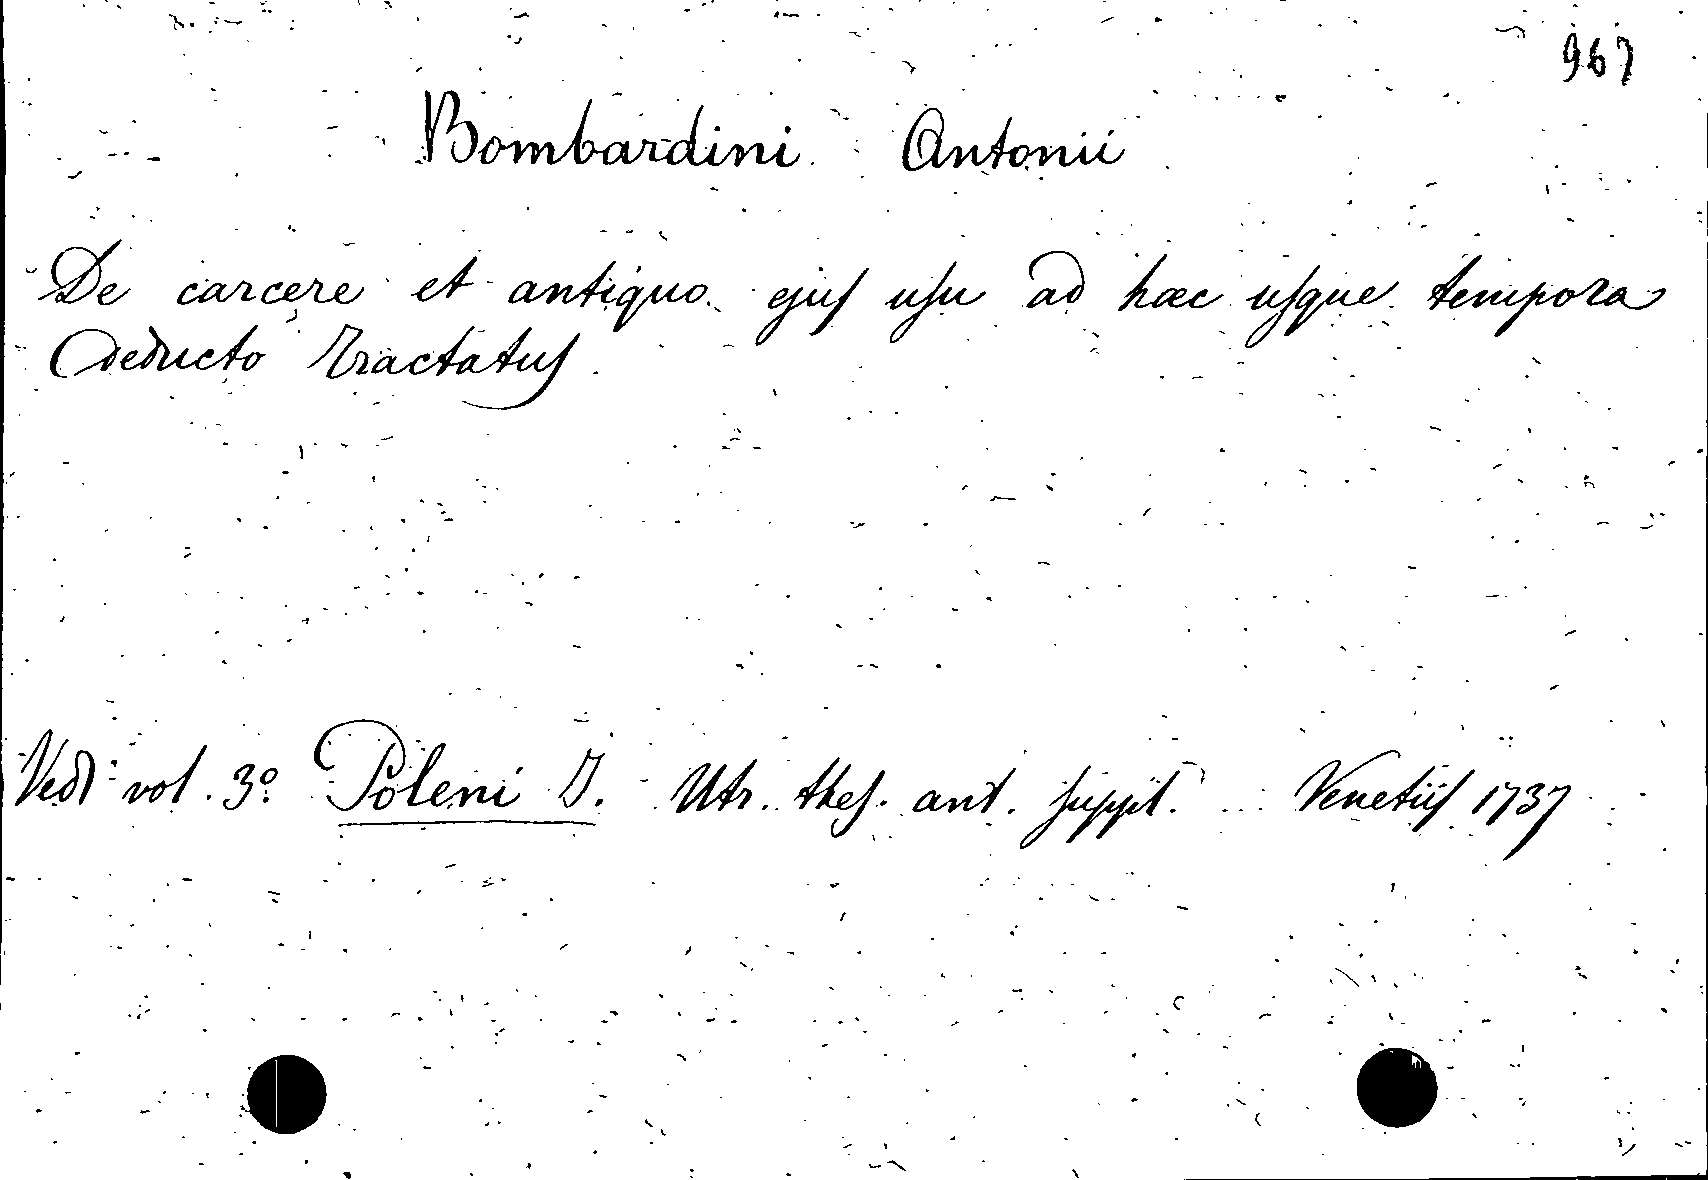 967
Bombardini Antonii
De carcere et antiquo ejus usu ad hæc usque tempora
deducto Tractatus.
Vedi vol. 3º. Poleni J. Utr. thes. ant. suppl. Venetiis 1737